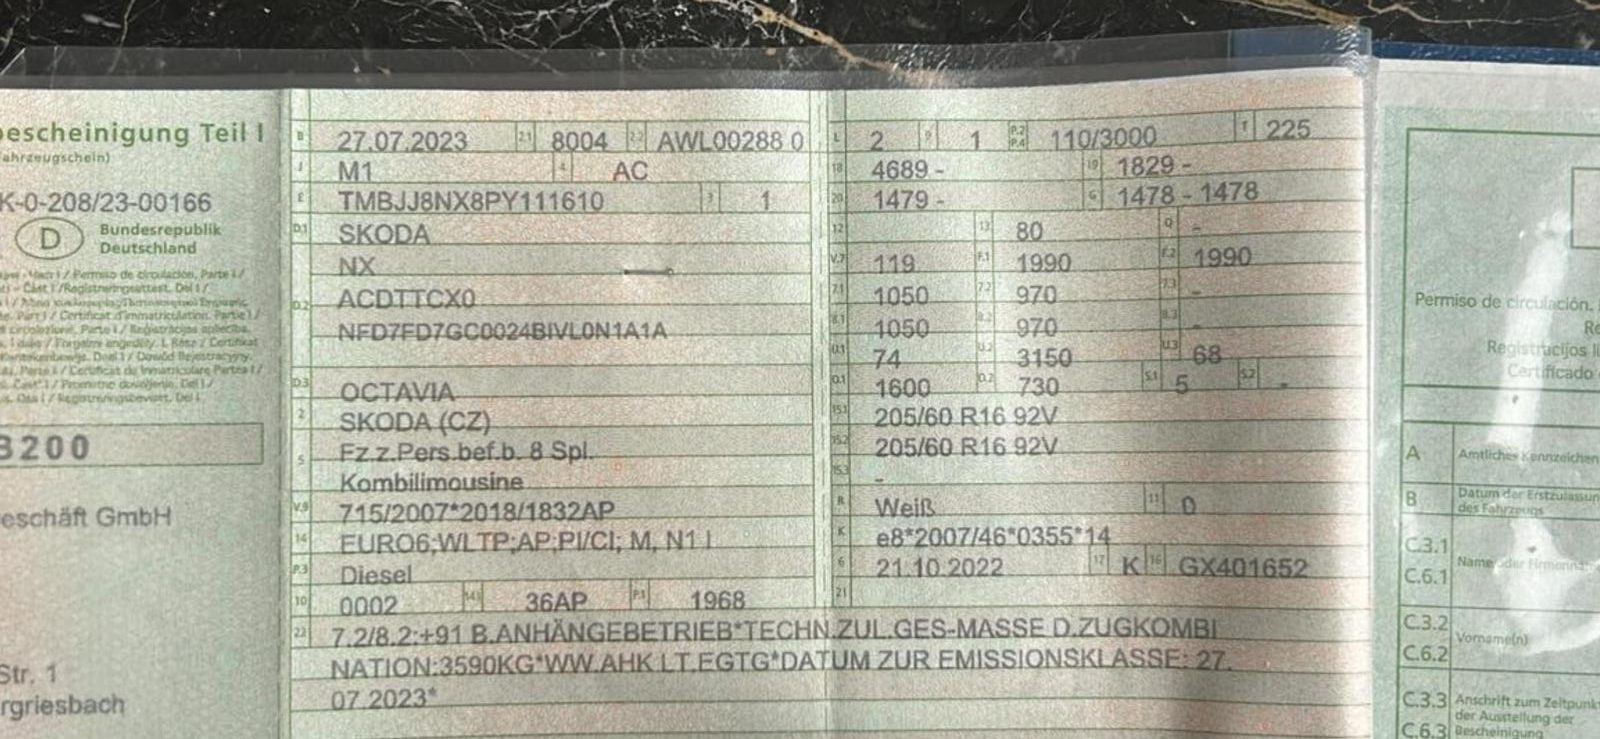 bescheinigung Teil I
ahrzeugschein)
K-0-208/23-00166
D
Bundesrepublik
Deutschland
3200
eschäft GmbH
Str. 1
rgriesbach
B 27.07.2023 2.1 8004 2.2 AWL00288 0
J M1 4 AC
E TMBJJ8NX8PY111610 3 1
D.1 SKODA
NX
D.2 ACDTTCX0
NFD7FD7GC0024BIVL0N1A1A
D.3 OCTAVIA
2 SKODA (CZ)
5 Fz.z.Pers.bef.b. 8 Spl.
Kombilimousine
V.9 715/2007*2018/1832AP
14 EURO6;WLTP;AP;PI/CI; M, N1 I
P.3 Diesel
10 0002 14.1 36AP P.1 1968
22 7.2/8.2:+91 B.ANHÄNGEBETRIEB*TECHN.ZUL.GES-MASSE D.ZUGKOMBI
NATION:3590KG*WW.AHK LT.EGTG*DATUM ZUR EMISSIONSKLASSE: 27.
07.2023*
L 2 9 1 P.2 P.4 110/3000 T 225
18 4689 - 19 1829 -
20 1479 - G 1478 - 1478
12 13 80 Q -
V.7 119 F.1 1990 F.2 1990
7.1 1050 7.2 970 7.3 -
8.1 1050 8.2 970 8.3 -
U.1 74 U.2 3150 U.3 68
O.1 1600 O.2 730 S.1 5 S.2 -
15.1 205/60 R16 92V
15.2 205/60 R16 92V
15.3 -
R Weiß 11 0
K e8*2007/46*0355*14
6 21.10.2022 17 K 16 GX401652
21
Permiso de circulación.
Registracijos li
Certificado
A Amtliches Kennzeichen
B Datum der Erstzulassun
des Fahrzeugs
C.3.1
C.6.1 Name oder Firmenna
C.3.2
C.6.2 Vorname(n)
C.3.3 Anschrift zum Zeitpunk
der Ausstellung der
C.6.3 Bescheinigung